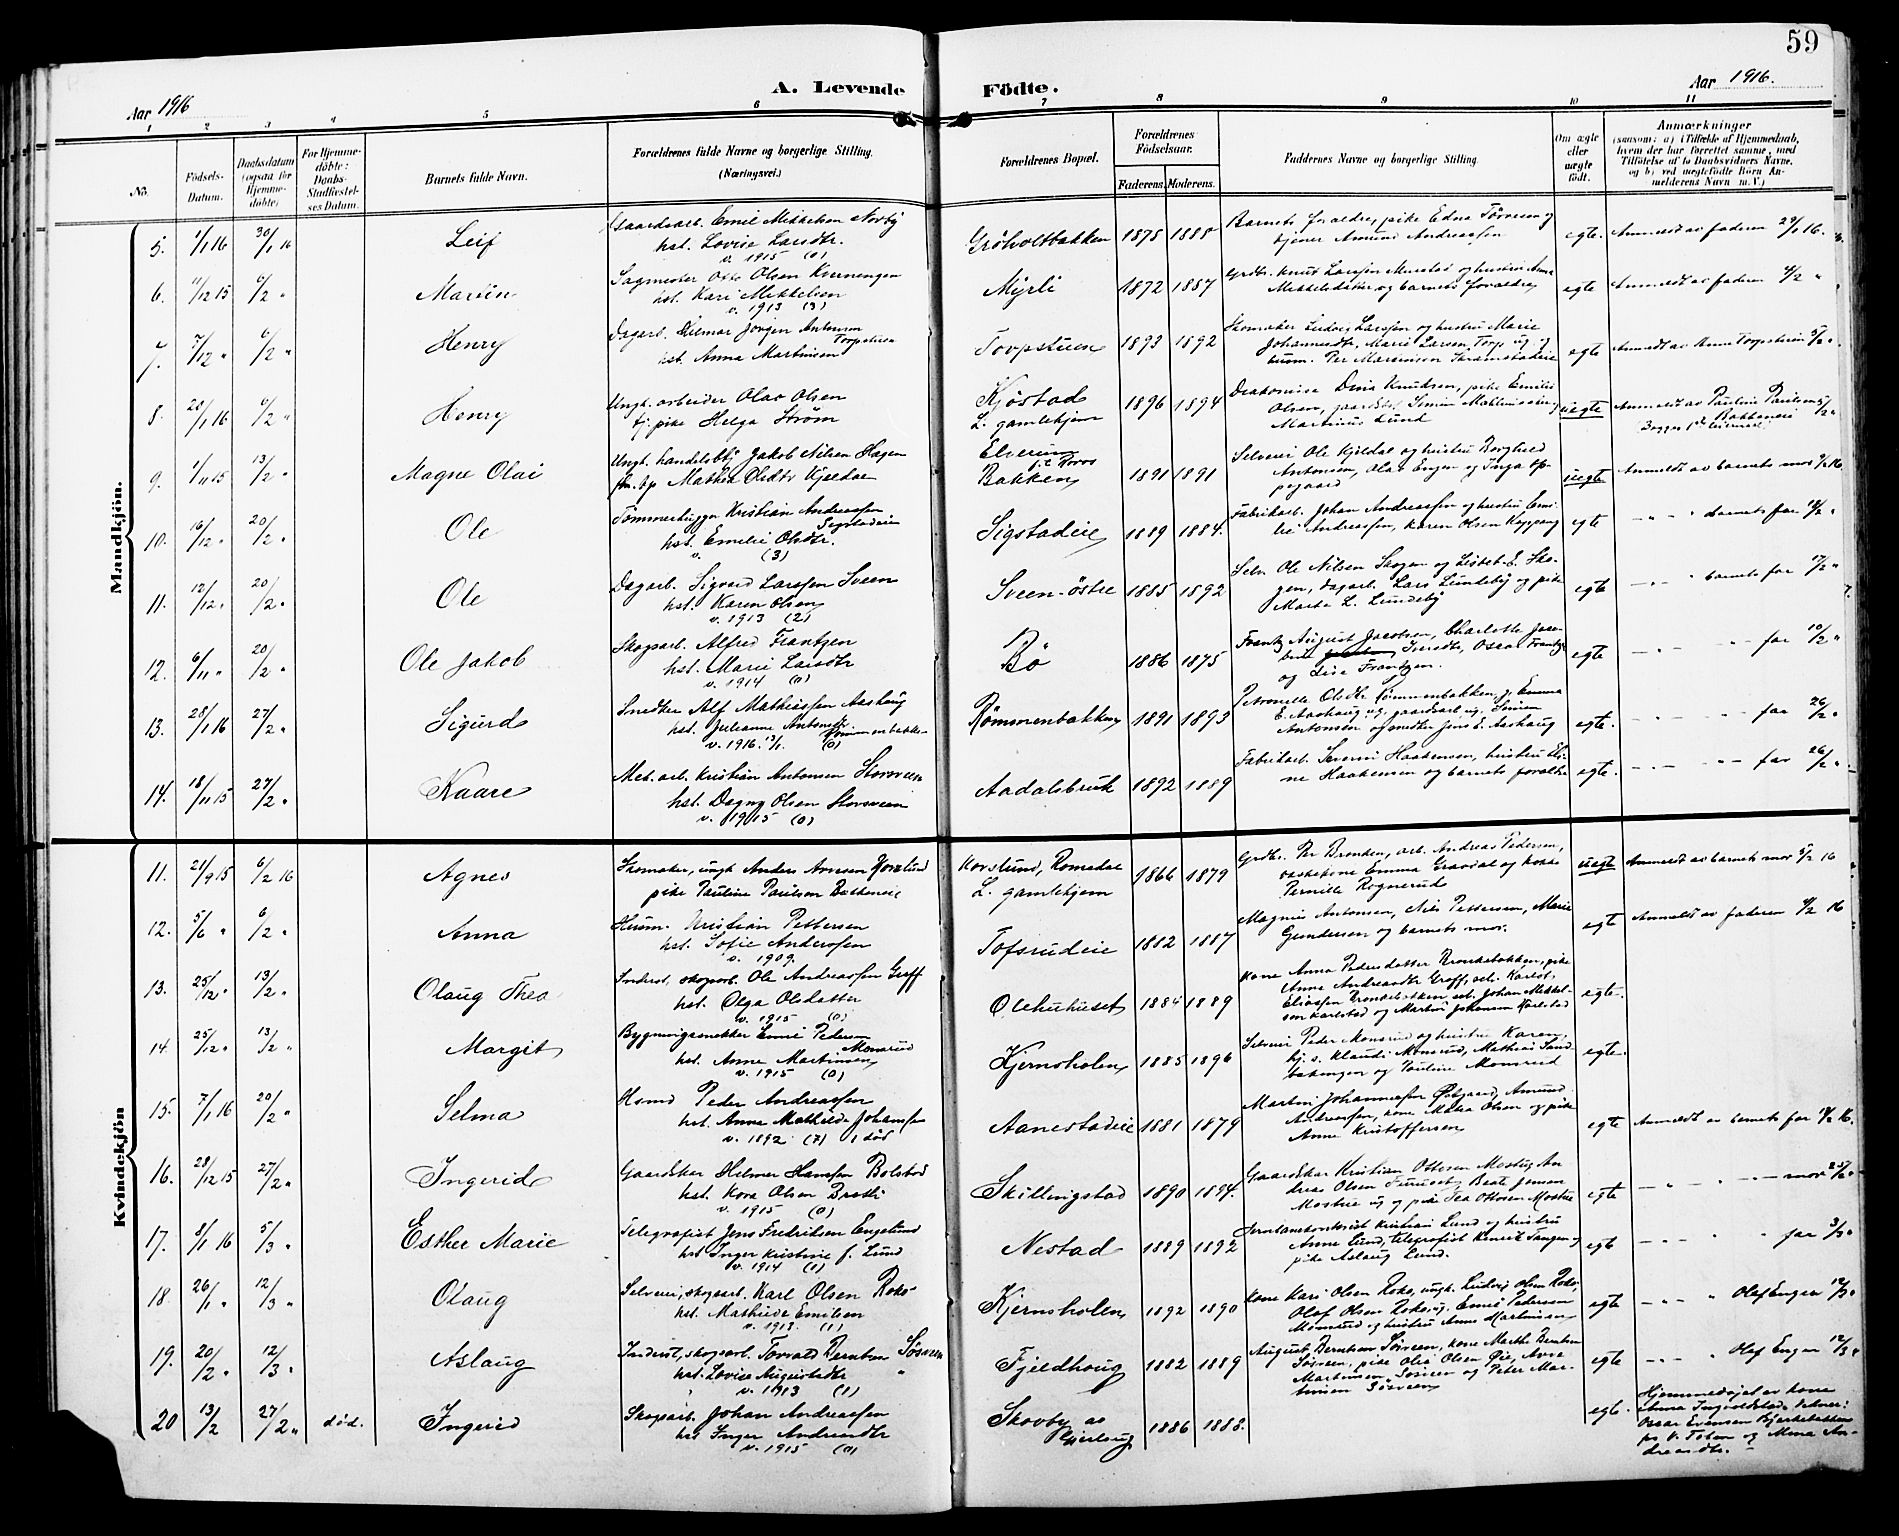 59
Aar 1916
A. Levende Födte.
Aar 1916.
1 2 3 4 5 6 7 8 9 10 11
No.
Födsels-Datum.
Daabsdatum (ogsaa for Hjemmedöbte)
For Hjemmedöbte: Daabs-Stadfæstelses Datum.
Barnets fulde Navn.
Forældrenes fulde Navne og borgerlige Stilling. (Næringsvei.)
Forældrenes Bopæl.
Forældrenes Födselsaar.
Faderens. Moderens.
Faddernes Navne og borgerlige Stilling.
Om ægte eller uægte födt.
Anmærkninger
(saasom: a) i Tilfælde af Hjemmedaab, hvem der har forrettet samme, med Tilföielse af to Daabsvidners Navne, og b) ved uægtefödte Börn Anmelderens Navn m. V.)
Mandkjön.
5. 1/1 16 30/1 16 Leif
Gaardsarb. Emil Mikkelsen
hst. Lovise Larsdtr.
v. 1915 (0)
Gröholtbakken 1875 1885
Barnets foraldre, pike Edna
tjener Amund Andreassen
egte. Anmeldt av faderen 29/1 16.
6. 11/12 15 6/2 " Martin
Sagmester Otto Olsen
hst. Kari Mikkelsen
v. 1913 (3)
Myrli 1872 1887
Grdbr. Knut Larssen og hustru Anna
Mikkelsdatter og barnets foraldre
egte Anmeldt av faderen 4/2 "
7. 7/12 " 6/2 " Henry
Dagarb. Hilmar Jörgen Antonsen
Torpstuen
hst. Anna Martinsen
Torpstuen 1893 1892
Skomaker Ludvig Larssen og hustru Marie
Johannesdt., Marie Larsen Torp ug. og
husm. Per Martinsen
egte Anmeldt av Anne Torpstuen 5/2 "
8. 20/1 16 6/2 " Henry
Ungk. arbeider Olav Olsen
tj. pike Helga Ström
Kjöstad
L. gamlehjem
1896 1894
Diakonisse Dina Knudsen, pike Emilie
Olsen,
Martinus Lund
uegte Anmeldt av Pauline Paulsen 5/2 "
Bakkeneie
Begges 1ste leiermaal.
9. 1/11 15 13/2 " Magne Olai
Ungk. handelsbtj. Jakob Nilsen Hagen
Mathea Olsdtr Kjeldae
Elverum
Bakken
1891 1891
Selveier Ole Kjeldal og hustru Borghild
Antonsen, Olav Engen og Inga
uegte Anmeldt av barnets mor
10. 16/12 " 20/2 " Ole
Tömmerhugger Kristian Andreassen
Sigstadeie
hst. Emelie Olsdtr.
v. (3)
Sigstadeie 1889 1884.
Fabrikarb. Johan Andreassen og hustru Emilie
Andreassen, Karen Olsen
egte — " — " barnets far 18/2 "
11. 12/12 " 20/2 " Ole
Dagarb. Sigvard Larssen Sveen
hst. Karen Olsen
v. 1913 (2)
Sveen-östre 1885 1892
Selv. Ole Nilsen Skogen og Lisbet E. Skogen,
dagarb. Lars Lundeby og pike
Marta L. Lundeby
egte — " — " barnets far 17/2 "
12. 6/11 " 20/2 " Ole Jakob
Skogsarb. Alfred Frantzen
hst. Marie Larsdtr
v. 1914 (0)
Bö 1886 1875
Frantz August Jacobsen, Charlotte
Oscar Frantz
og Lise Frantzen.
egte — " — " — far 10/2 "
13. 28/1 16 27/2 " Sigurd
Snedker Alf Mathiassen Aashaug
hst. Julianne Antonsdtr.
Römmenbakken
v. 1916. 13/1 (0)
Römmenbakken 1891 1893
Petronelle Olsdtr Römmenbakken, p. Emma
E. Aashaug ug. gaardsarb. ug. Simen
Antonsen og snedker Jens E. Aashaug
egte. — " — " — far 26/2 "
14. 18/11 15 27/2 " Kaare
Mek. arb. Kristian Antonsen Storsveen
hst. Dagny Olsen Storsveen
v. 1915 (0)
Aadalsbruk 1892 1889
Fabrikarb. Severin Haakensen, hustru
Haakensen og barnets foraldre
egte. — " — " — far 26/2 "
Kvindekjön
11. 21/9 15 6/2 16 Agnes
Skomaker, ungk. Anders Arnesen Horslund
pike Pauline Paulsen Bakkeneie
Korslund, Romedal
L. gamlehjem
1866 1879
Grdbr. Per Bronken, arb. Andreas Pedersen,
vaskekone Emma Gravdal og kokke
Pernille Rognerud
uegte Anmeldt av barnets mor 5/2 16
12. 5/6 " 6/2 " Anna
Husm. Kristian Pettersen
hst. Sofie Anderssen
v. 1909.
Tofsrudeie 1882 1887
Magnus Antonsen, Nils Pettersen, Marie
Gundersen og barnets mor.
egte Anmeldt av faderen 4/2 16
13. 25/12 " 13/2 " Olaug Thea
Inderst, skogarb. Ole Andreassen Graff
hst. Olga Olsdatter
v. 1915 (0)
Olehuhuset 1884 1889
Kone Anna Pedersdatter Bronkebakken, pike
Anne Andreasdtr Graff, selv. Karlst.
Eliassen Bronkebakken, selv. Johan Mikkelsen
Karlstad og Martin Johansen Karlstad
egte.
14. 25/12 " 13/2 " Margit
Bygningssnekker Emil Pedersen
Monsrud
hst. Anne Martinsen
v. 1915 (0)
Kjernsholen 1885 1896
Selveier Peder Monsrud og hustru Karen,
tj. s. Klaudi Monsrud, Mathias
og Pauline Monsrud
egte.
15. 7/1 16 20/2 " Selma
Hsmd Peder Andreassen
hst. Anne Mathilde Johanssen
v. 1892 (7) 1 död
Aanestadeie 1881 1879
Martin Johannessen Östgaard, Amund
Andreassen, kone Olsen og pike
Anne Kristoffersen
egte Anmeldt av barnets far 19/2 16.
16. 28/12 15 27/2 " Ingerid
Gaardskar Helmer Hanssen Bolstad
hst. Kora Olsen
v. 1915 (0)
Skillingstad 1890 1894.
Gaardskar Kristian Ottesen Mostue, Andreas
Olsen Beate Jensen
Mostue ug. og pike Ottosen Mostue
egte — " — " — mor 25/2 "
17. 8/1 16 5/3 " Esther Marie
Telegrafist Jens Fredriksen Engelund
hst Inger Kristine f. Lund
v. 1914 (1)
Nestad 1889 1892
Jernbanekontorist Kristian Lund og hustru
Anne Lund, telegrafist Henrik Tangen og
pike Aslaug Lund.
egte — " — " " far 3/3 "
18. 26/1 " 12/3 " Olaug
Selveier, skogsarb. Karl Olsen Roko
hst. Mathilde Emilsen
v. 1913. (1)
Kjernsholen 1892 1890
Kone Kari Olsen Roko, ungk. Ludvig Olsen Roko,
Olaf Olsen Roko, ug. Emil Pedersen
Monsrud og hustru Anne Martinsen
egte — " — " Olaf Engen 12/3 "
19. 20/2 " 12/3 " Aslaug
Inderst, skogsarb. Torvald Berntsen Sörsveen
hst. Lovise Augustsdtr
v. 1913 (1)
Fjeldhaug 1882 1889
August Berntsen Sörsveen, kone Marthe Berntsen
Sörsveen, pike Olia Olsen Öie, Arne
Martinsen Sörsveen og Peter Martinsen
Sörsveen
egte — " — " Olaf Engen 12/3 "
20 13/2 27/2 " död. Ingerid
Skogsarb. Johan Andreassen
hst Inger Andreasdtr
v. 1915 (0)
Skovby av
1886 1888.
egte. Hjemmedöpt av kone
Anna Ingvoldstad. Vidner:
Oscar Evensen Bjerkebakken
og Mina Andreasdtr.